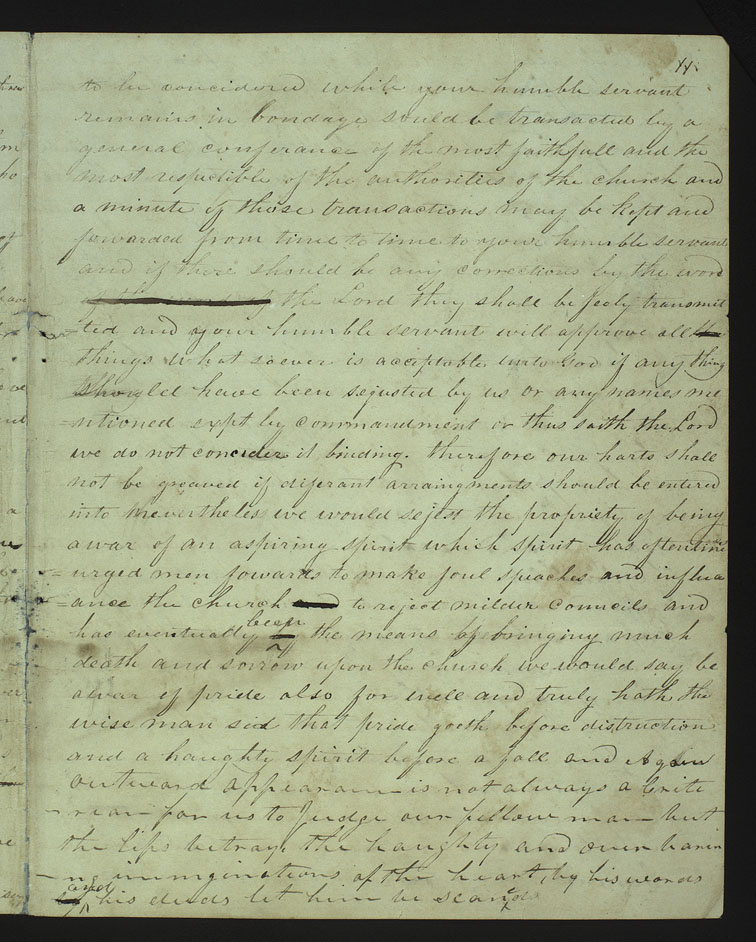 11
to be concidered while your humble servant
remains in bondage sould be transacted by a
general conferance of the most faithfull and the
most respictible of the authorities of the church and
a minute of those transactions may be kept and
fowarded from time to time to your humble servant
and if there should be any corrections by the word
the Lord they shall be feely transmit
=ted and your humble servant will approve all
things what soever is acceptable unto God if any thing
should have been sejusted by us or any names me
=ntioned expt by commandment or thus saith the Lord
we do not concider it binding. therefore our harts shall
not be greaved if diferant arraingments should be entered
into nevertheless we would sejest the propriety of being
awar of an aspiring spirit which spirit has oftentimes
=urged men fowards to make foul speaches and influa
=ance the church to reject milder councils and
has eventually been the means of bringing much
death and sorrow upon the church we would say be
awar of pride also for well and truly hath the
wise man sid that pride goeth before distruction
and a haughty spirit before a fall and Again
outward appearance is not always a Crite
-rian for us to Judge our fellow man but
the lips betray the haughty and over barin
-ng immaginations of the heart, by his words
and his deeds let him be scan'd